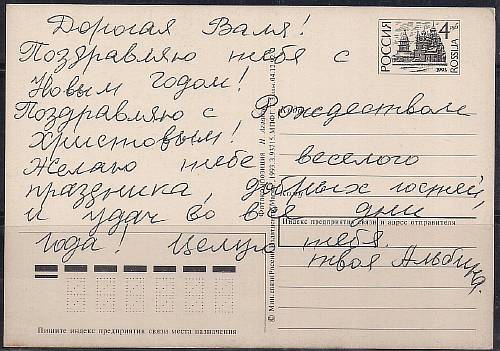 Дорогая Валя!
Поздравляю тебя с
Новым годом!
Поздравляю с Рождеством
Христовым!
Желаю тебе веселого
праздника, добрых гостей,
и удач во все дни
года! Целую тебя.
твоя Альбина.
РОССИЯ
4
1993
ROSSIJA
Куда
Кому
Индекс предприятия связи и адрес отправителя
Пишите индекс предприятия связи места назначения